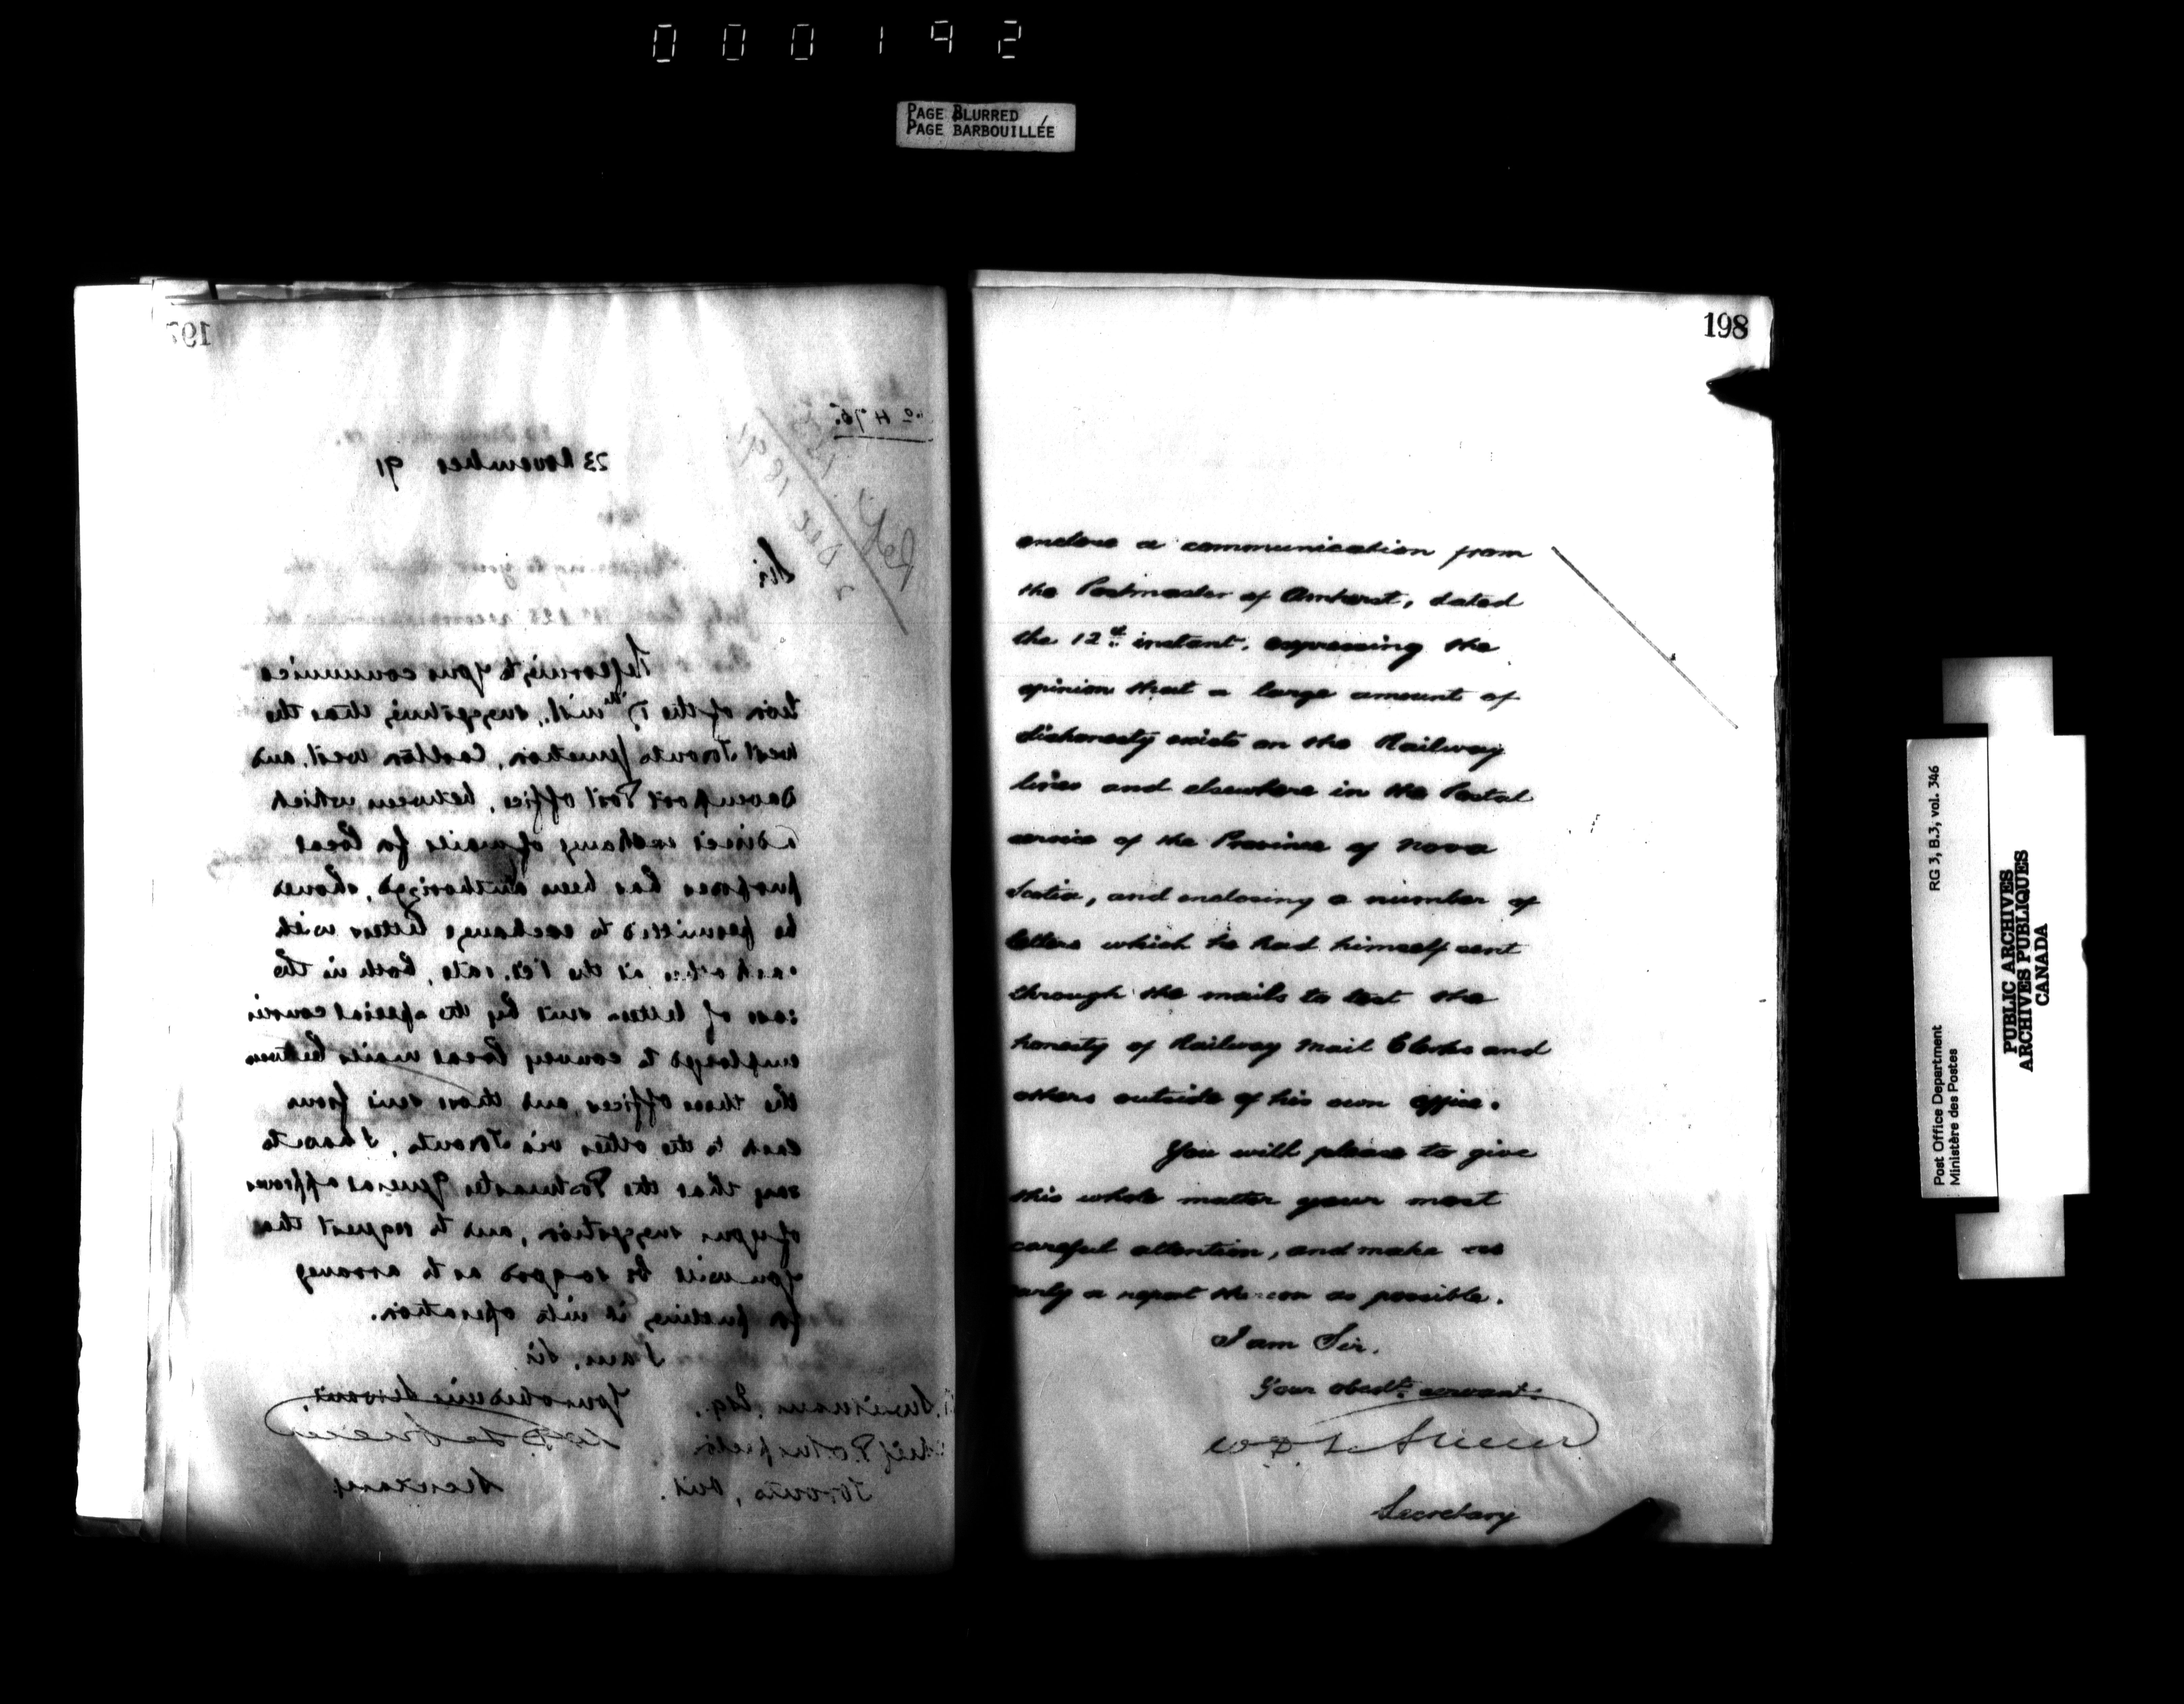 000192
PAGE BLURRED
PAGE BARBOUILLÉE
197
No 475
23 November 91
2 Dec 1891
Sir
Referring to your communica
tion of the 17th inst., suggesting that the
West Toronto Junction, Carlton West, and
Davenport Post Offices, between which
a direct exchange of mails for local
purposes has been authorized, should
be permitted to exchange letters with
each other at the 1 ct. rate, both in the
case of letters sent by the special courier
employed to convey local mails between
the three offices, and those sent from
each to the other via Toronto, I have to
say that the Postmaster General approves
of your suggestion, and to request that
you will be so good as to arrange
for putting it into operation.
I am, Sir
Your obedient Servant,
Esq.
Chief P.O. Inspector
Toronto, Ont.
Secretary
198
enclose a communication from
the Postmaster of Amherst, dated
the 12th instant, expressing the
opinion that a large amount of
dishonesty exists on the Railway
lines and elsewhere in the Postal
service of the Province of Nova
Scotia, and enclosing a number of
letters which he had himself sent
through the mails to test the
honesty of Railway Mail Clerks and
others outside of his own office.
You will please to give
this whole matter your most
careful attention, and make as
early a report thereon as possible.
I am Sir.
Your obedt. servant.
Secretary
Post Office Department
Ministère des Postes
RG 3, B.3, vol. 346
PUBLIC ARCHIVES
ARCHIVES PUBLIQUES
CANADA